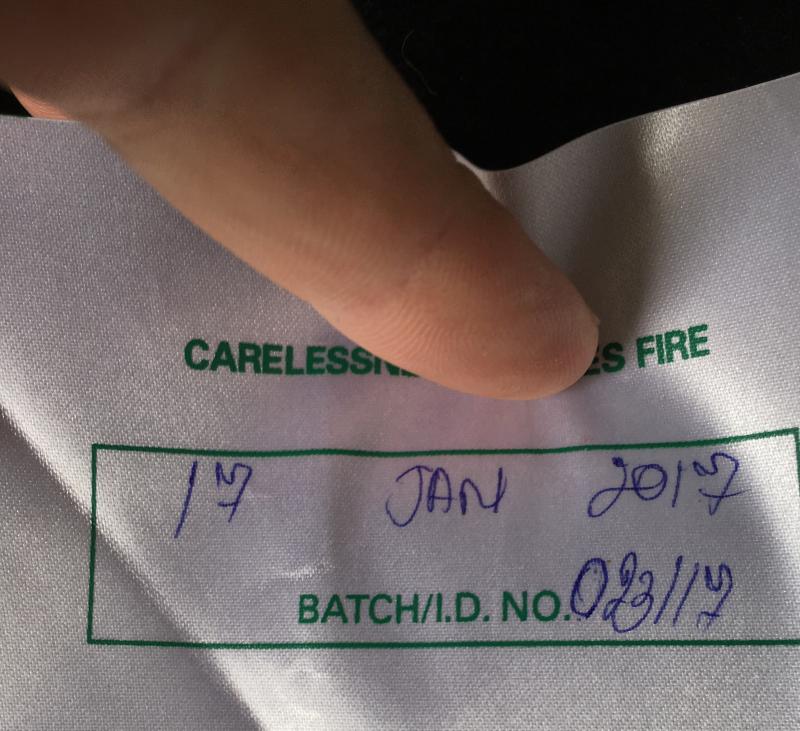 CARELESSN ES FIRE
17 JAN 2017
BATCH/I.D. NO. 023/17